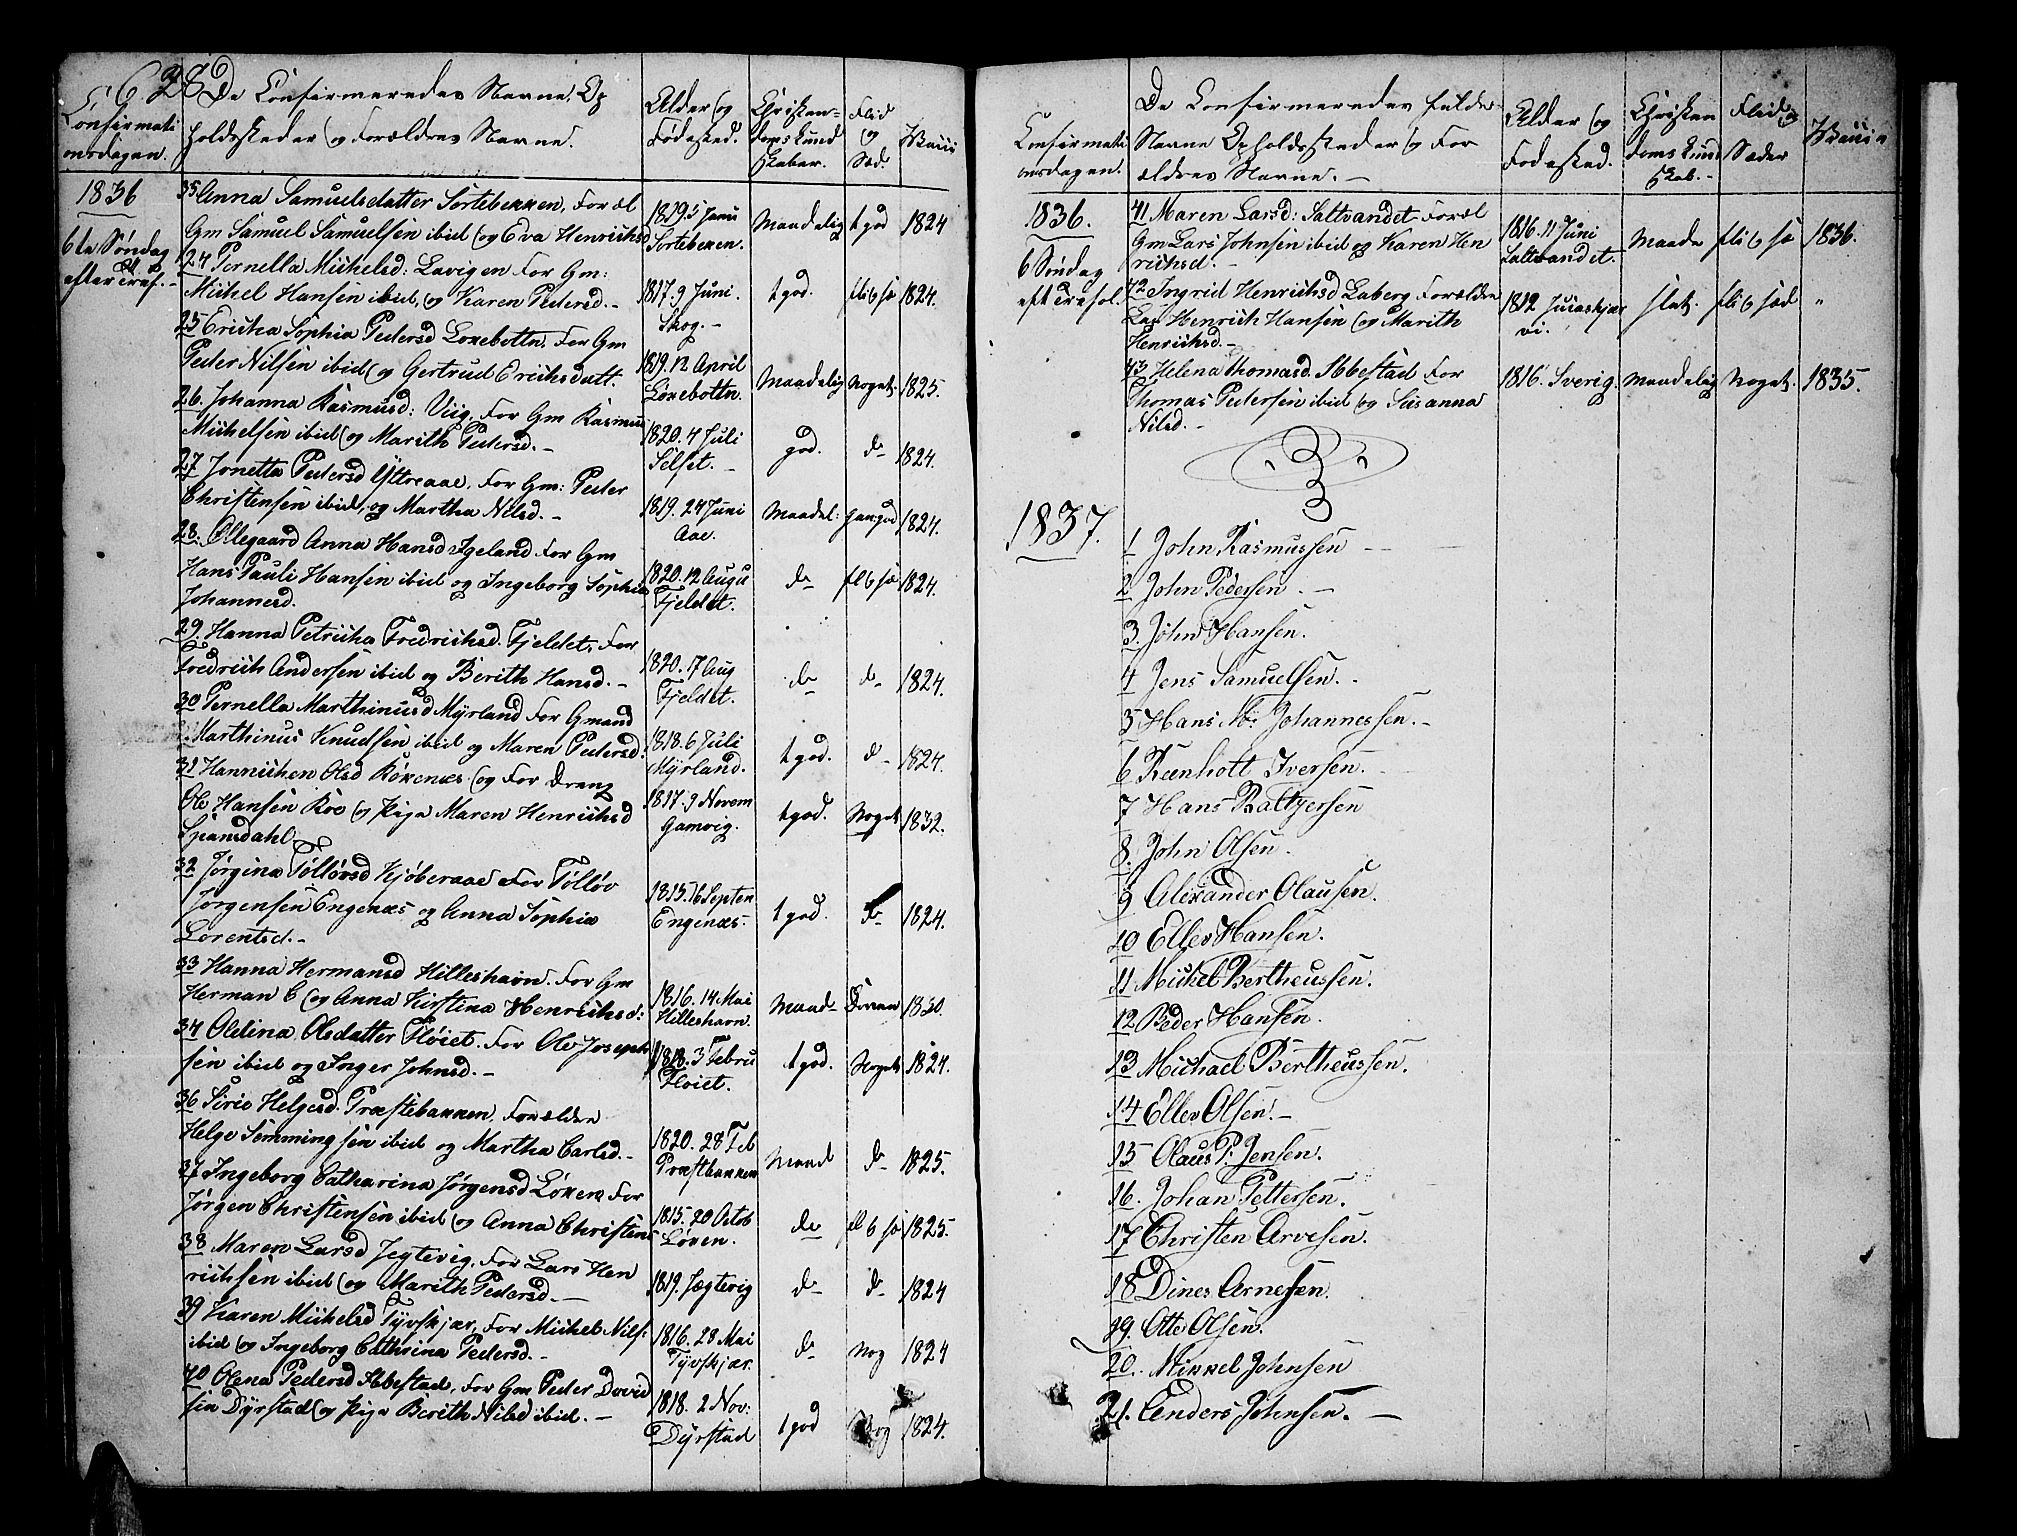 628
Confirmati
onsdagen.
De Confirmeredes Navne, Op
holdssteder og Forældres Navne.
Alder og
Fødested.
Christen=
doms Kund
skaber.
Flid
og
Sæd.
1836
6te Søndag
efter Tref.
35 Anna Samuelsdatter Sortebekken, Foræl
Gm Samuel Samuelsen ibid og Eva Henrichsd
1819 5 Janu
Sortebekken.
Maadelig
t god
1824
24 Pernella Michelsd: Lavigen For Gm:
Michel Hansen ibid, og Karen Pedersd.-
1817. 9 Juni.
Skog.-
t god.
fli b sæ
1824.
25 Ericha Sophia Pedersd Loxebottn, For Gm
Peder Nilsen ibid og Gertrud Erichsdatt.
1819. 12 April
Loxebottn.
Maadelig
Noget.
1825.
26. Johanna Rasmusd: Viig, For Gm Rasmus
Michelsen ibid og Marith Pedersd.-
1820. 4 Juli
Selset.-
god.
do
1824.
27 Jonetta Pedersd Yttreaae, For Gm: Peder
Christensen ibid, og Martha Nilsd.-
1819. 24 Juni
Aae.
Maadel:
1824.
28. Ollegaard Anna Hansd Igeland For Gm
Hans Pauli Hansen ibid og Ingeborg Sophia
Johannesd.
1820. 12 Augu
Fjeldet.
do
fl b sæ
1824.
29. Hanna Petricha Fredrichsd. Fjeldet, For
Fredrich Andersen ibid og Berith Hansd.-
1820. 17 Aug
Fjeldet.
do
do
1824.
30 Pernella Marthinusd Myrland For Gmand
Marthinus Knudsen ibid og Maren Pedersd.
1818. 6 Juli
Myrland.
t god.
do
1824.
31 Hannichen Olsd Röxenæs og For Dreng
Ole Hansen Roe og Pige Maren Henrichsd
Spansdahl.
1817. 9 Novem
Gamvig.
t god.
Noget
1832.
32 Jørgina Tolløvsd Kjøberaae For Tolløv
Jørgensen Engenæs og Anna Sophia
Lorentsd.-
1815. 16 Septen
Engenæs.
t god.
do
1824.
33 Hanna Hermansd Hilleshavn. For Gm
Herman C og Anna Kirstina Henrichsd:
1816. 14 Mai
Hilleshavn.
Maad-
1830.
34 Oldina Olsdatter Fløiet. For Ole Joseph
sen ibid og Inger Johnsd.-
1818. 3 Febru
Fløiet.
t god.
Noget
1824.
36 Siri Helgesd. Præstebakken. Forældre
Helge Semmingsen ibid og Martha Carlsd.-
1820. 28 Feb
Præstbakken
Maad
do
1825.
37 Ingeborg Catharina Jørgensd Löxen For
Jørgen Christensen ibid og Anna Christens
1815. 20 Octob
Löxen.
do
fl b sæ
1825.
38 Maren Larsd Jegtevig, For Lars Hen
richsen ibid og Marith Pedersd.-
1819. Jægtevig
do
do
1824
39 Karen Michelsd Tyvskjær, For Michel Nils:
ibid og Ingeborg Cathrina Pedersd.-
1816. 28 Mai
Tyvskjær.
do
Nog
1824
40 Olena Pedersd Abbestad, For Gm Peder David
sen Dyrstad og Pige Berith Nilsd ibid.-
1818. 2 Nov:
Dyrstad
t god
Nog
1824.
Confirmati
onsdagen.
De Confirmeredes fulde
Navne Opholdssteder og For
ældres Navne.-
Alder og
Fødested.
Christen
doms Kund
skab.-
Flid og
Sæder
1836.
6 Søndag
eft Trefol.
41 Maren Larsd: Saltvandet Foræl
Gm Lars Johnsen ibid og Karen Hen
richsd.-
1816. 11 Juni
Saltvandet.
Maade
fli b sæ
1836.
42 Ingrid Henrichsd Laberg Forældre
Lap Henrich Hansen og Marith
Henrichsd.-
1812 Jucaskjær
vi.
slet.
fli b sæd
"
43 Helena Thomasd. Abbestad For
Thomas Pedersen ibid og Susanna
Nilsd.-
1816. Sverig.
Maadelig
Noget.
1835.
1837.
1 John Rasmussen
2 John Pedersen.-
3. John Hansen.
4 Jens Samuelsen.-
5 Hans N: Johannessen.-
6 Reenholt Iversen.
7 Hans Baltzersen
8. John Olsen.
9 Alexander Olausen.
10 Eller Hansen.
11 Michel Bertheussen.
12 Peder Hansen.
13 Michael Bertheussen.
14 Eller Olsen.-
15 Olaus P. Jensen.
16. Johan Pettersen.
17 Christen Arvesen.
18 Dines Arnesen.
19. Otte Olsen.
20. Mikkel Johnsen
21. Anders Johnsen.-